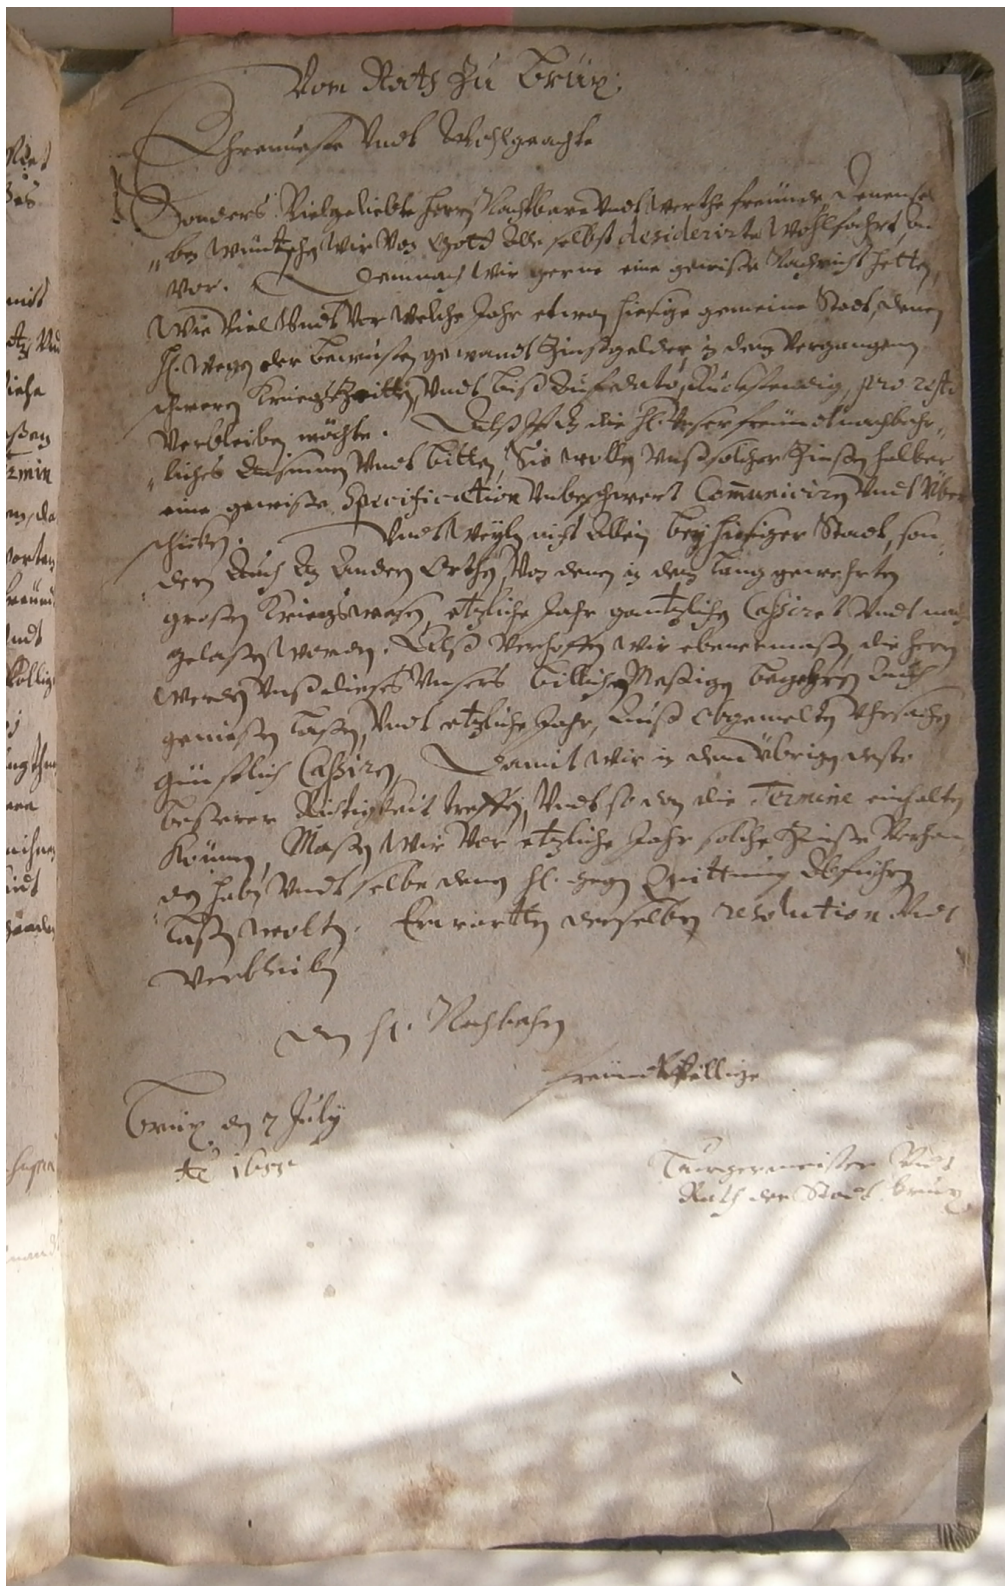 Vom Rath Zu Brüx.
Ehrenueste Vndt Wohlgeachte
Sonders Vielgeliebte Herrn Nachtbarn Vndt Werthe freünde, Denensel
„ben wüntschen Wir Von Gott Alle selbst desiderirte Wohlfahrt, zu
vor. Demnach Wir gerne eine gewisse Nachricht hetten,
Wie Viel Vndt Vor Welche Jahr etwan hiesige gemeine Stadt, denen
H. Wegen der bewusten gewandt Zinßgelder, in dem Vergangenen
schweren Kriegs Zeitten, Vndt biß Auf dato, Rückstendig, pro resto
Verbleiben möchte. Alß ist an die H. Vnser freündtnachbahr„
„liches Ansinnen Vndt bitten, Sie wollen Vnß solcher Zinßen halber
eine gewisse Specification Vnbeschwert Com̄uniciren Vndt Über
schicken. Vndt Weyln nicht Allein bey hiesiger Stadt, son„
dern Auch An Andern Orthen, Von denen in dem lang gewehrten
großen Kriegswesen, etzliche Jahr gantzlichen Cassiret Vndt nach
gelaßen worden. Alß Verhoffen wir ebenermaßen die Herrn
werden Vnß dieses Vnsers billich Meßigen begehren Auch
genießen laßen, Vndt etzliche Jahr, Auß obgemelten Vhrsachen
günstlich Cassiren, Damit Wir in dem übrigen desto
beßerer Richtigkeit treffen, Vndt so dan die Termine einhalten
Können, Maßen Wir Vor etzliche Jahr solche Zinße Verhan
den haben Vndt selbe denen H. gegen Quittung Abführen
laßen wolten. Erwartten derselben resolution Vndt
Verbleiben
Den H. Nachbahrn
freündtWillige
Brüx den 7 July
Aō 1655
Burgermeister Vndt
Rath der Stadt Brüx